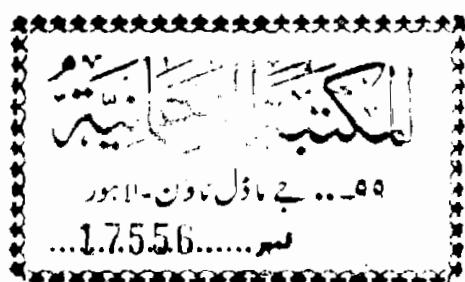 المكتبة الرحمانية
۹۹ــ... جے ماڈل ٹاؤن-لاہور
نمبر......17556...